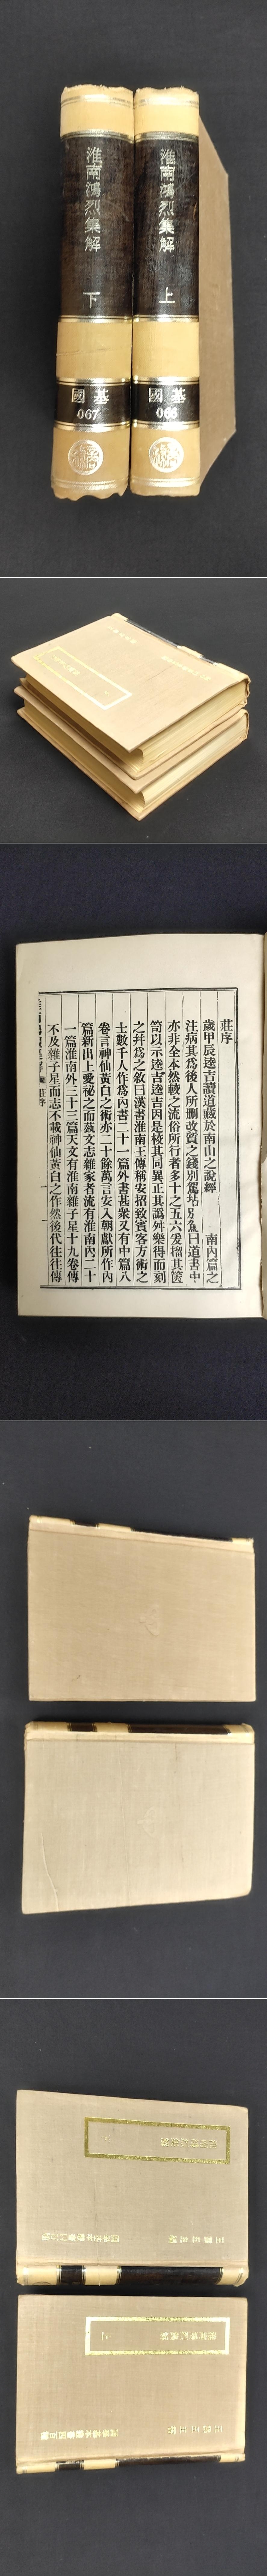 淮南鴻烈集解
上
國基
066
淮南鴻烈集解
下
國基
067
莊序
歲甲辰逵吉讀道藏於南山之說經 南內篇之
注病其為後人所刪改質之錢別駕坫別駕曰道書中
亦非全本然較之流俗所行者多十之五六爰搢其篋
笥以示逵吉逵吉因是校其同異正其譌舛樂得而刻
之幷為之敘曰漢書淮南王傳稱安招致賓客方術之
士數千人作為內書二十一篇外書甚衆又有中篇八
卷言神仙黃白之術亦二十餘萬言安入朝獻所作內
篇新出上愛祕之而蓺文志雜家者流有淮南內二十
一篇淮南外三十三篇天文有淮南雜子星十九卷傳
不及雜子星而志不載神仙黃白之作然後代往往傳
莊序
一